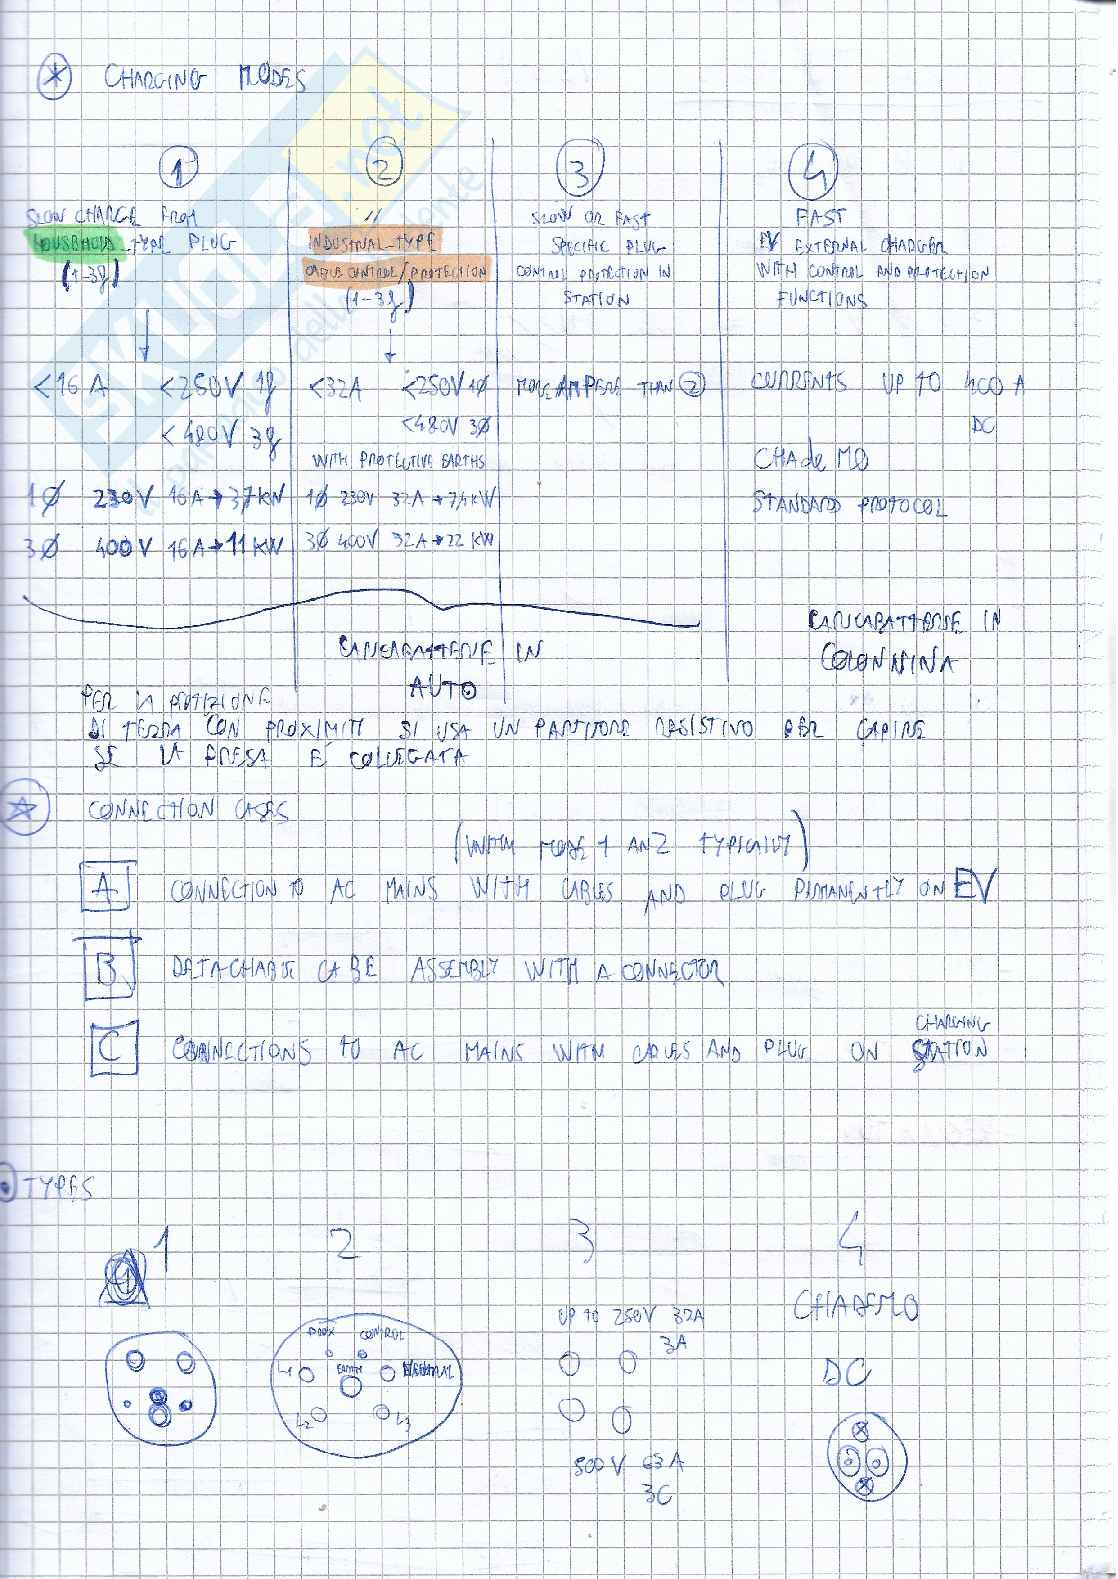 * CHARGING MODES
1
SLOW CHARGE FROM
HOUSEHOLD-TYPE PLUG
(1-3φ)
<16 A <250V 1φ
<480V 3φ
1Ø 230V 16A→3,7kW
3Ø 400V 16A→11 kW
2
//
INDUSTRIAL-TYPE
CABLE CONTROL/PROTECTION
(1-3φ)
<32A <250V 1Ø
<480V 3Ø
WITH PROTECTIVE EARTHS
1Ø 230V 32A→7,4kW
3Ø 400V 32A→22 kW
3
SLOW OR FAST
SPECIFIC PLUG
CONTROL PROTECTION IN
STATION
MORE AMPERE THAN 2
4
FAST
EXTERNAL CHARGER
WITH CONTROL AND PROTECTION
FUNCTIONS
CURRENTS UP TO 400 A
DC
CHAdeMO
STANDARD PROTOCOL
CARICABATTERIE IN
AUTO
CARICABATTERIE IN
COLONNINA
PER LA PROTEZIONE
DI TERRA CON PROXIMITI SI USA UN PARTITORE RESISTIVO PER CAPIRE
SE LA PRESA È COLLEGATA
CONNECTION CASES
(WITH MODE 1 AN2 TYPICALLY)
A CONNECTION TO AC MAINS WITH CABLES AND PLUG PERMANENTLY ON EV
B CABLE ASSEMBLY WITH A CONNECTOR
C CONNECTIONS TO AC MAINS WITH CABLES AND PLUG ON CHARGING STATION
TYPES
1 2 3 4
PROX CONTROL
L1 EARTH NEUTRAL
L2 L3
UP TO 250V 32A
3A
500V 63A
3C
CHADEMO
DC
SKUOLA.not